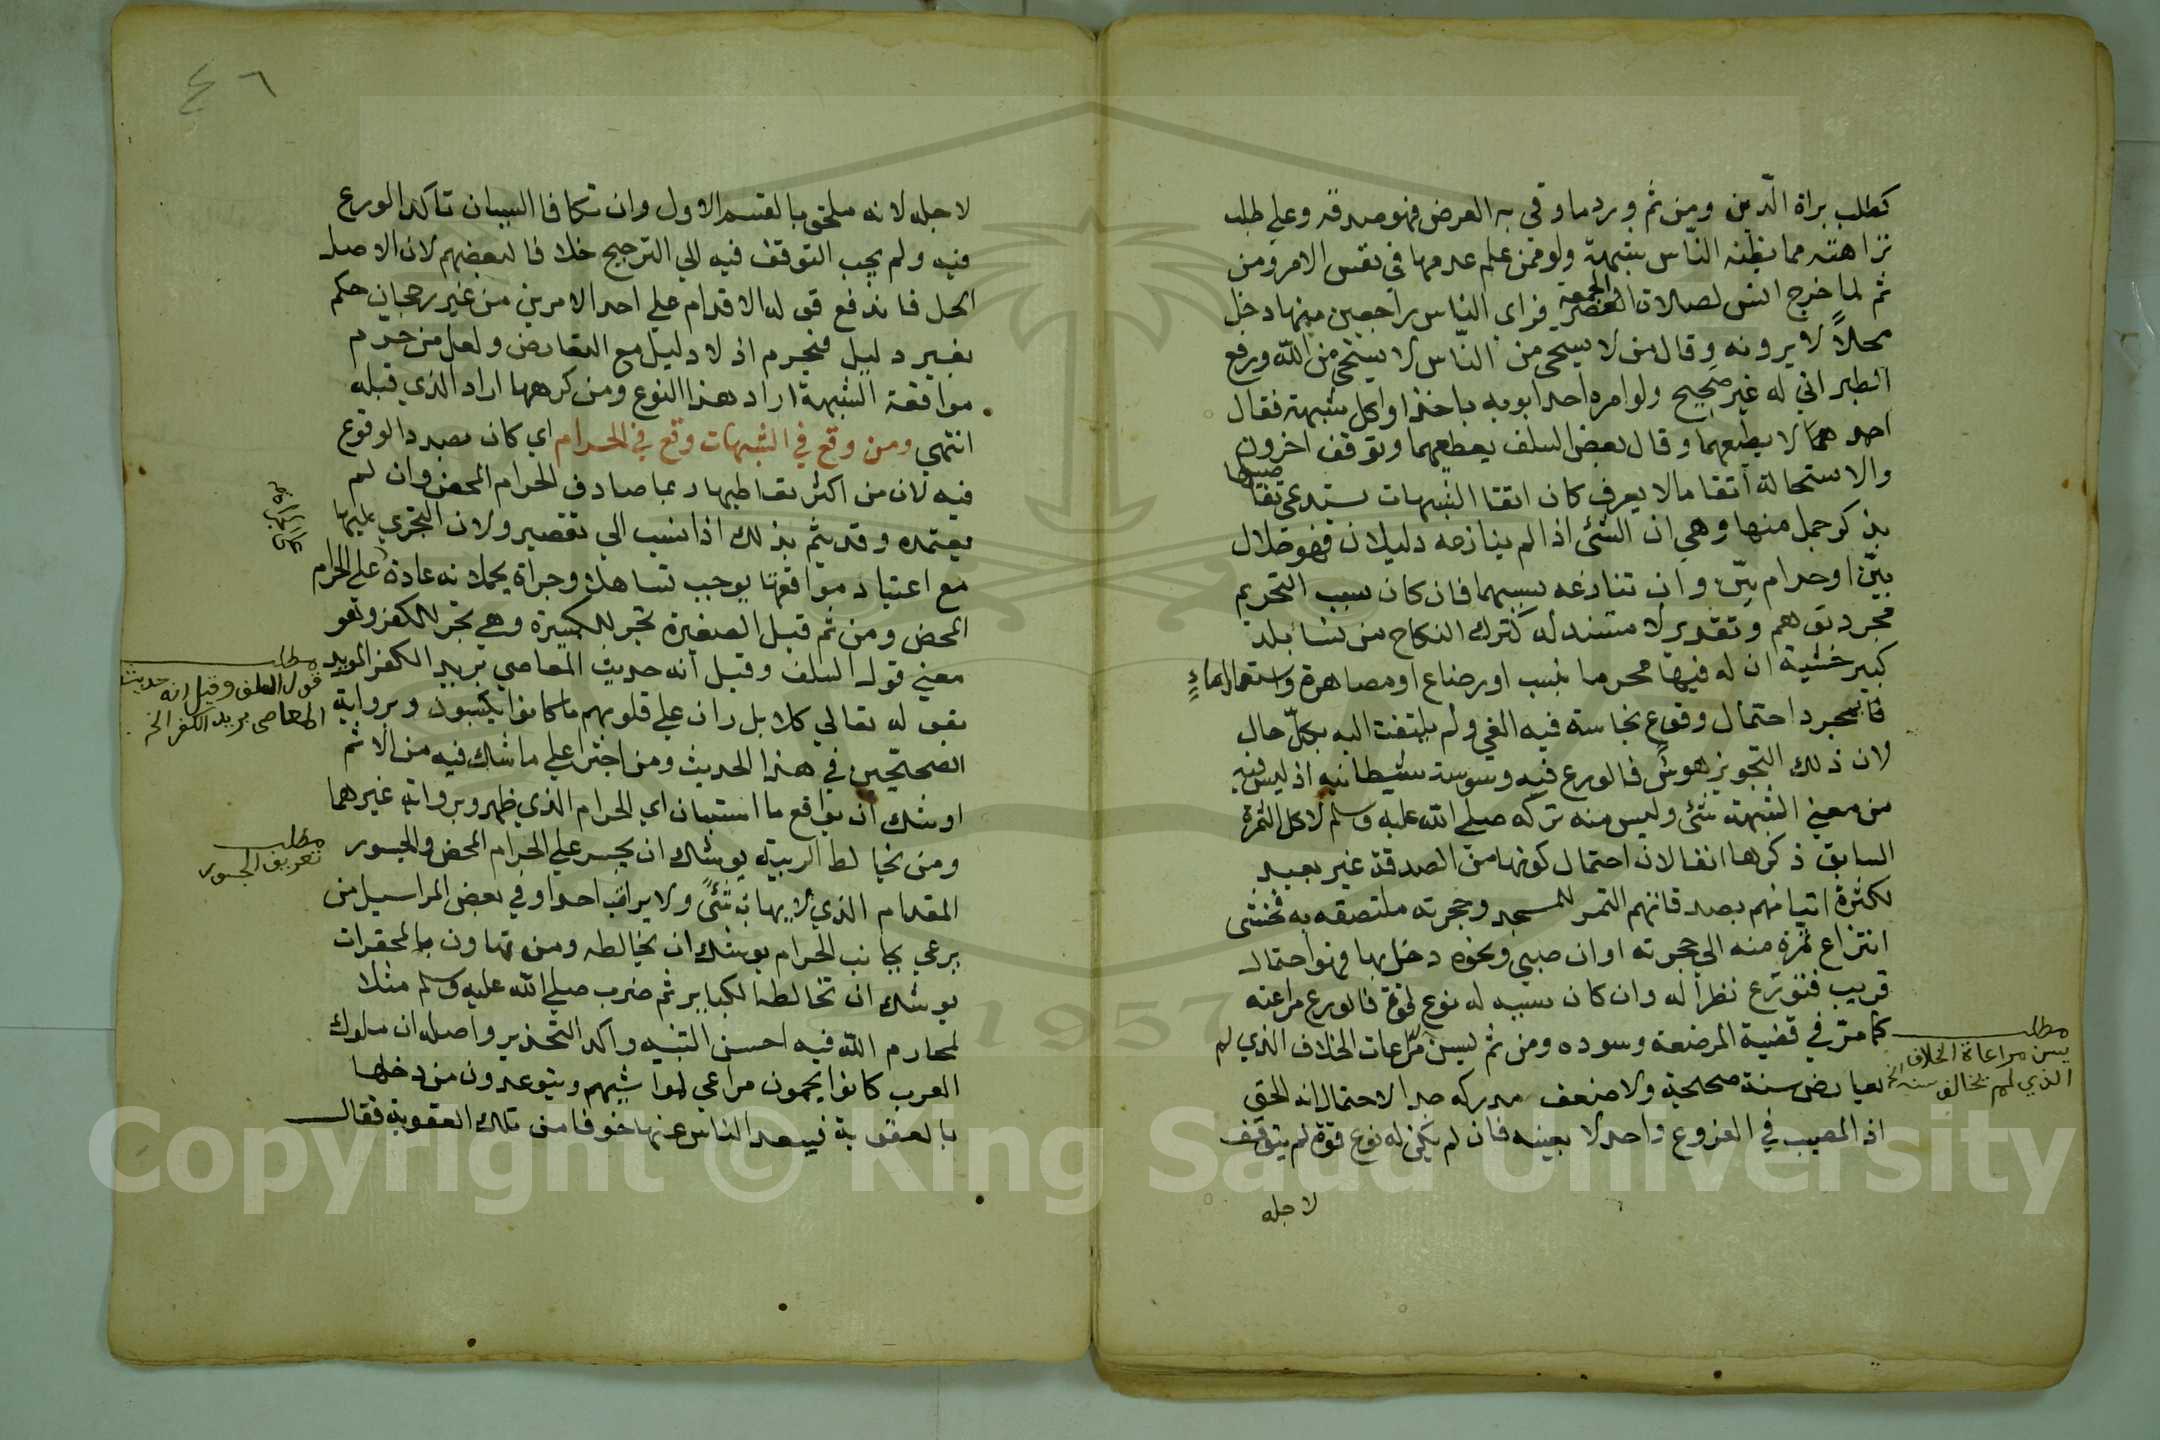 كطلب براة الدين ومن ثم ورد ما وقي به العرض فهو صدقه وعلي طلب
نزاهته مما يظنه الناس شبهة ولو ممن علم عدمها في نفس الامر ومن
ثم لما خرج انس لصلات الجمعة فراي الناس راجعين منها دخل
محلاً لا يرونه وقال من لا يستحي من الناس لا يستحي من الله ورفع
الطبراني له غير صحيح ولو امره احد ابويه باخذ او اكل شبهة فقال
احمد لا يطيعهما وقال بعض السلف يطيعهما وتوقف اخرون
والاستحالة اتقا ما لا يعرف كان اتقا الشبهات يستدعي
بذكر جمل منها وهي ان الشئ اذا لم ينازعه دليلان فهو حلال
بيّن او حرام بيّن وان تنازعه سببهما فان كان سبب التحريم
مجرد توهم وتقدير لا مستند له كترك النكاح من نسا بلد
كبير خشية ان له فيها محرما بنسب او رضاع او مصاهرة واستعمال ماءٍ
لمجرد احتمال وقوع نجاسة فيه الغي ولم يلتفت اليه بكلّ حال
لان ذلك التجويز هوس فالورع فيه وسوسة شيطانيه اذ ليس فيه
من معني الشبهة شئ وليس منه تركه صلي الله عليه وسلم لاكل الثمرة
السابق ذكرها انفا لان احتمال كونها من الصدقة غير بعيد
لكثرة اتيانهم بصدقاتهم التمر للمسجد وحجرته ملتصقه به فخشي
انتزاع ثمرة منه الي حجرته او ان صبي ونحوه دخل بها فهو احتمال
قريب فتورّع نظراً له وان كان سببه له نوع قوة فالورع مراعته
كما مرّ في قضية المرضعة وسوده ومن ثم يسن مراعات الخلاف الذي لم
يعارض سنة صحيحة ولا ضعف مدركه حدا لاحتمال انه الحق
اذ المصيب في الفروع واحد لا بعينه فان لم يكن له نوع قوة لم يتوقف
لاجله
مطلب
يسن مراعاة الخلاف
الذي لم يخالف سنه الخ
٤٦
لاجله لانه ملحق بالقسم الاول وان تكافا السببان تاكد الورع
فيه ولم يجب التوقف فيه الي الترجيح خلافا لبعضهم لان الاصل
الحل فاندفع قوله الاقدام علي احد الامرين من غير رجحان حكم
بغير دليل فيحرم اذ لا دليل مع التعارض ولعل من حرم
مواقعة الشبهة اراد هذا النوع ومن كرهها اراد الذي قبله
انتهي ومن وقع في الشبهات وقع في الحرام اي كان بصدد الوقوع
فيه لان من اكثر تعاطيها ربما صادف الحرام المحض وان لم
يعتمده وقد يثم بذلك اذا نسب الي تقصير ولان التجري عليها
مع اعتياد مواقعتها يوجب تساهلا وجراة يحملانه عادة علي الحرام
المحض ومن ثم قيل الصغيرة تجر للكبيرة وهي تجر للكفر وهو
معني قول السلف وقيل انه حديث المعاصي بريد الكفر المويد
بقوله تعالي كلا بل ران علي قلوبهم ما كانوا يكسبون وبرواية
الصحيحين في هذا الحديث ومن اجترا علي ما شك فيه من الاثم
اوشك ان يواقع ما استبان اي الحرام الذي ظهر وبرواية غيرهما
ومن يخالط الريبة يوشك ان يجسر علي الحرام المحض والجسور
المقدام الذي لا يهاب شئً ولا يراقب احدا وفي بعض المراسيل من
يرعي بجانب الحرام يوشك ان يخالطه ومن تهاون بالمحقرات
يوشك ان تخالطه الكباير ثم ضرب صلي الله عليه وسلم مثلا
لمحارم الله فيه احسن التنبيه واكد التحذير واصله ان ملوك
العرب كانوا يحمون مراعي لمواشيهم ويتوعدون من دخلها
بالعقوبة فيبعد الناس عنها خوفا من تلك العقوبة فقال
مطلب
قول السلف وقيل انه حديث
المعاصي بريد الكفر الخ
مطلب
تعريف الجسور
1957
Copyright © King Saud University